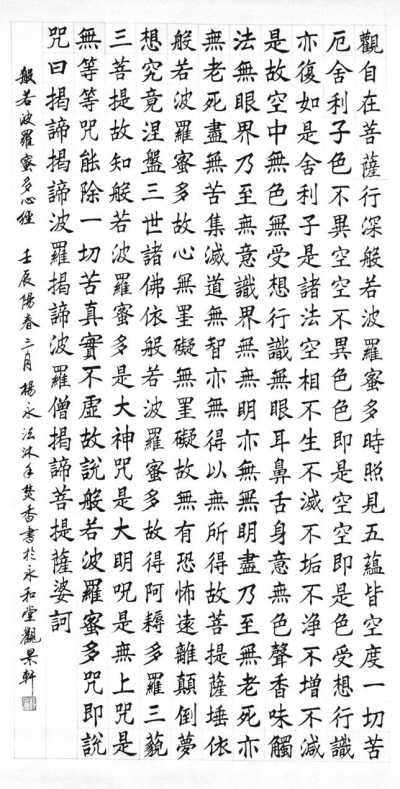 觀自在菩薩行深般若波羅蜜多時照見五蘊皆空度一切苦
厄舍利子色不異空空不異色色即是空空即是色受想行識
亦復如是舍利子是諸法空相不生不滅不垢不净不增不減
是故空中無色無受想行識無眼耳鼻舌身意無色聲香味觸
法無眼界乃至無意識界無無明亦無無明盡乃至無老死亦
無老死盡無苦集滅道無智亦無得以無所得故菩提薩埵依
般若波羅蜜多故心無罣礙無罣礙故無有恐怖遠離顛倒夢
想究竟涅盤三世諸佛依般若波羅蜜多故得阿耨多羅三藐
三菩提故知般若波羅蜜多是大神咒是大明呪是無上咒是
無等等咒能除一切苦真實不虛故說般若波羅蜜多咒即說
咒曰揭諦揭諦波羅揭諦波羅僧揭諦菩提薩婆訶
般若波羅蜜多心經 壬辰陽春三月楊永法沐手焚香書於永和堂觀果軒